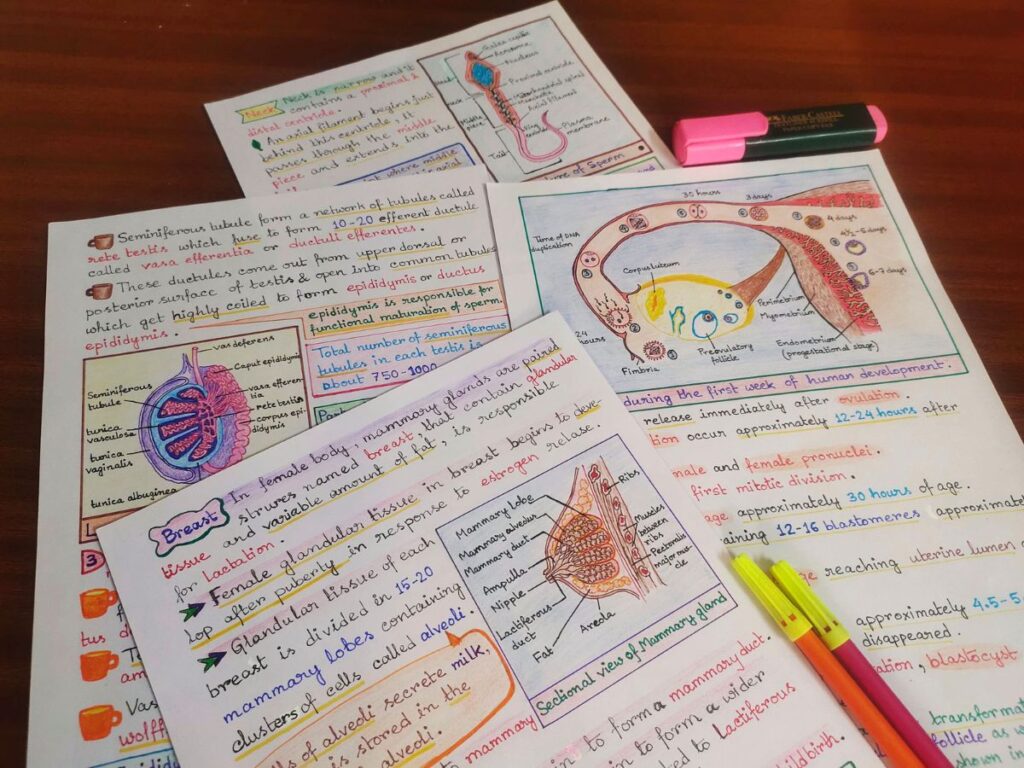 Neck
Neck is narrow and it
contains a proximal &
distal centriole.
An axial filament begins just
behind this centriole, it
passes through the middle
piece and extends into
Acrosome
Nucleus
Proximal centriole
Axial filament
Plasma
membrane
Head
Middle
piece
Tail
of Sperm
FABER-CASTELL
Seminiferous tubule form a network of tubules called
rete testis which fuse to form 10-20 efferent ductule
called vasa efferentia or ductuli efferentes.
These ductules come out from upper dorsal or
posterior surface of testis & open into common tubule
which get highly coiled to form epididymis or ductus
epididymis.
epididymis is responsible for
functional maturation of sperm.
Total number of seminiferous
tubules in each testis is
about 750-1000
vas deferens
Caput epididymis
vasa efferen-
tia
rete testis
corpus epi-
didymis
Seminiferous
tubule
tunica
vasculosa
tunica
vaginalis
tunica albuginea
3
35 hours
3 days
4 days
4½-5 days
6-7 days
Time of DNA
duplication
Corpus luteum
Perimetrium
Myometrium
24
hours
Fimbria
Preovulatory
follicle
Endometrium
(progestational stage)
during the first week of human development.
release immediately after ovulation.
occur approximately 12-24 hours after
male and female pronuclei.
first mitotic division.
approximately 30 hours of age.
12-16 blastomeres
reaching uterine lumen
approximately 4.5-5
disappeared.
blastocyst
follicle as
shown in
Breast
In female body, mammary glands are paired
strures named breast that contain glandular
tissue and variable amount of fat, is responsible
for lactation.
Female glandular tissue in breast begins to deve
lop after puberly in response to estrogen relase.
Glandular tissue of each
breast is divided in 15-20
mammary lobes containing
clusters of cells called alveoli.
of alveoli secrete milk,
is stored in the
alveoli.
Mammary lobe
Mammary alveolus
Mammary duct
Ampulla
Nipple
Lactiferous
duct
Fat
Areola
Ribs
Muscles
between
ribs
Pectoralis
major mus-
cle
Sectional view of Mammary gland
to form a mammary duct.
mammary
to form a wider
to Lactiferous
childbirth.